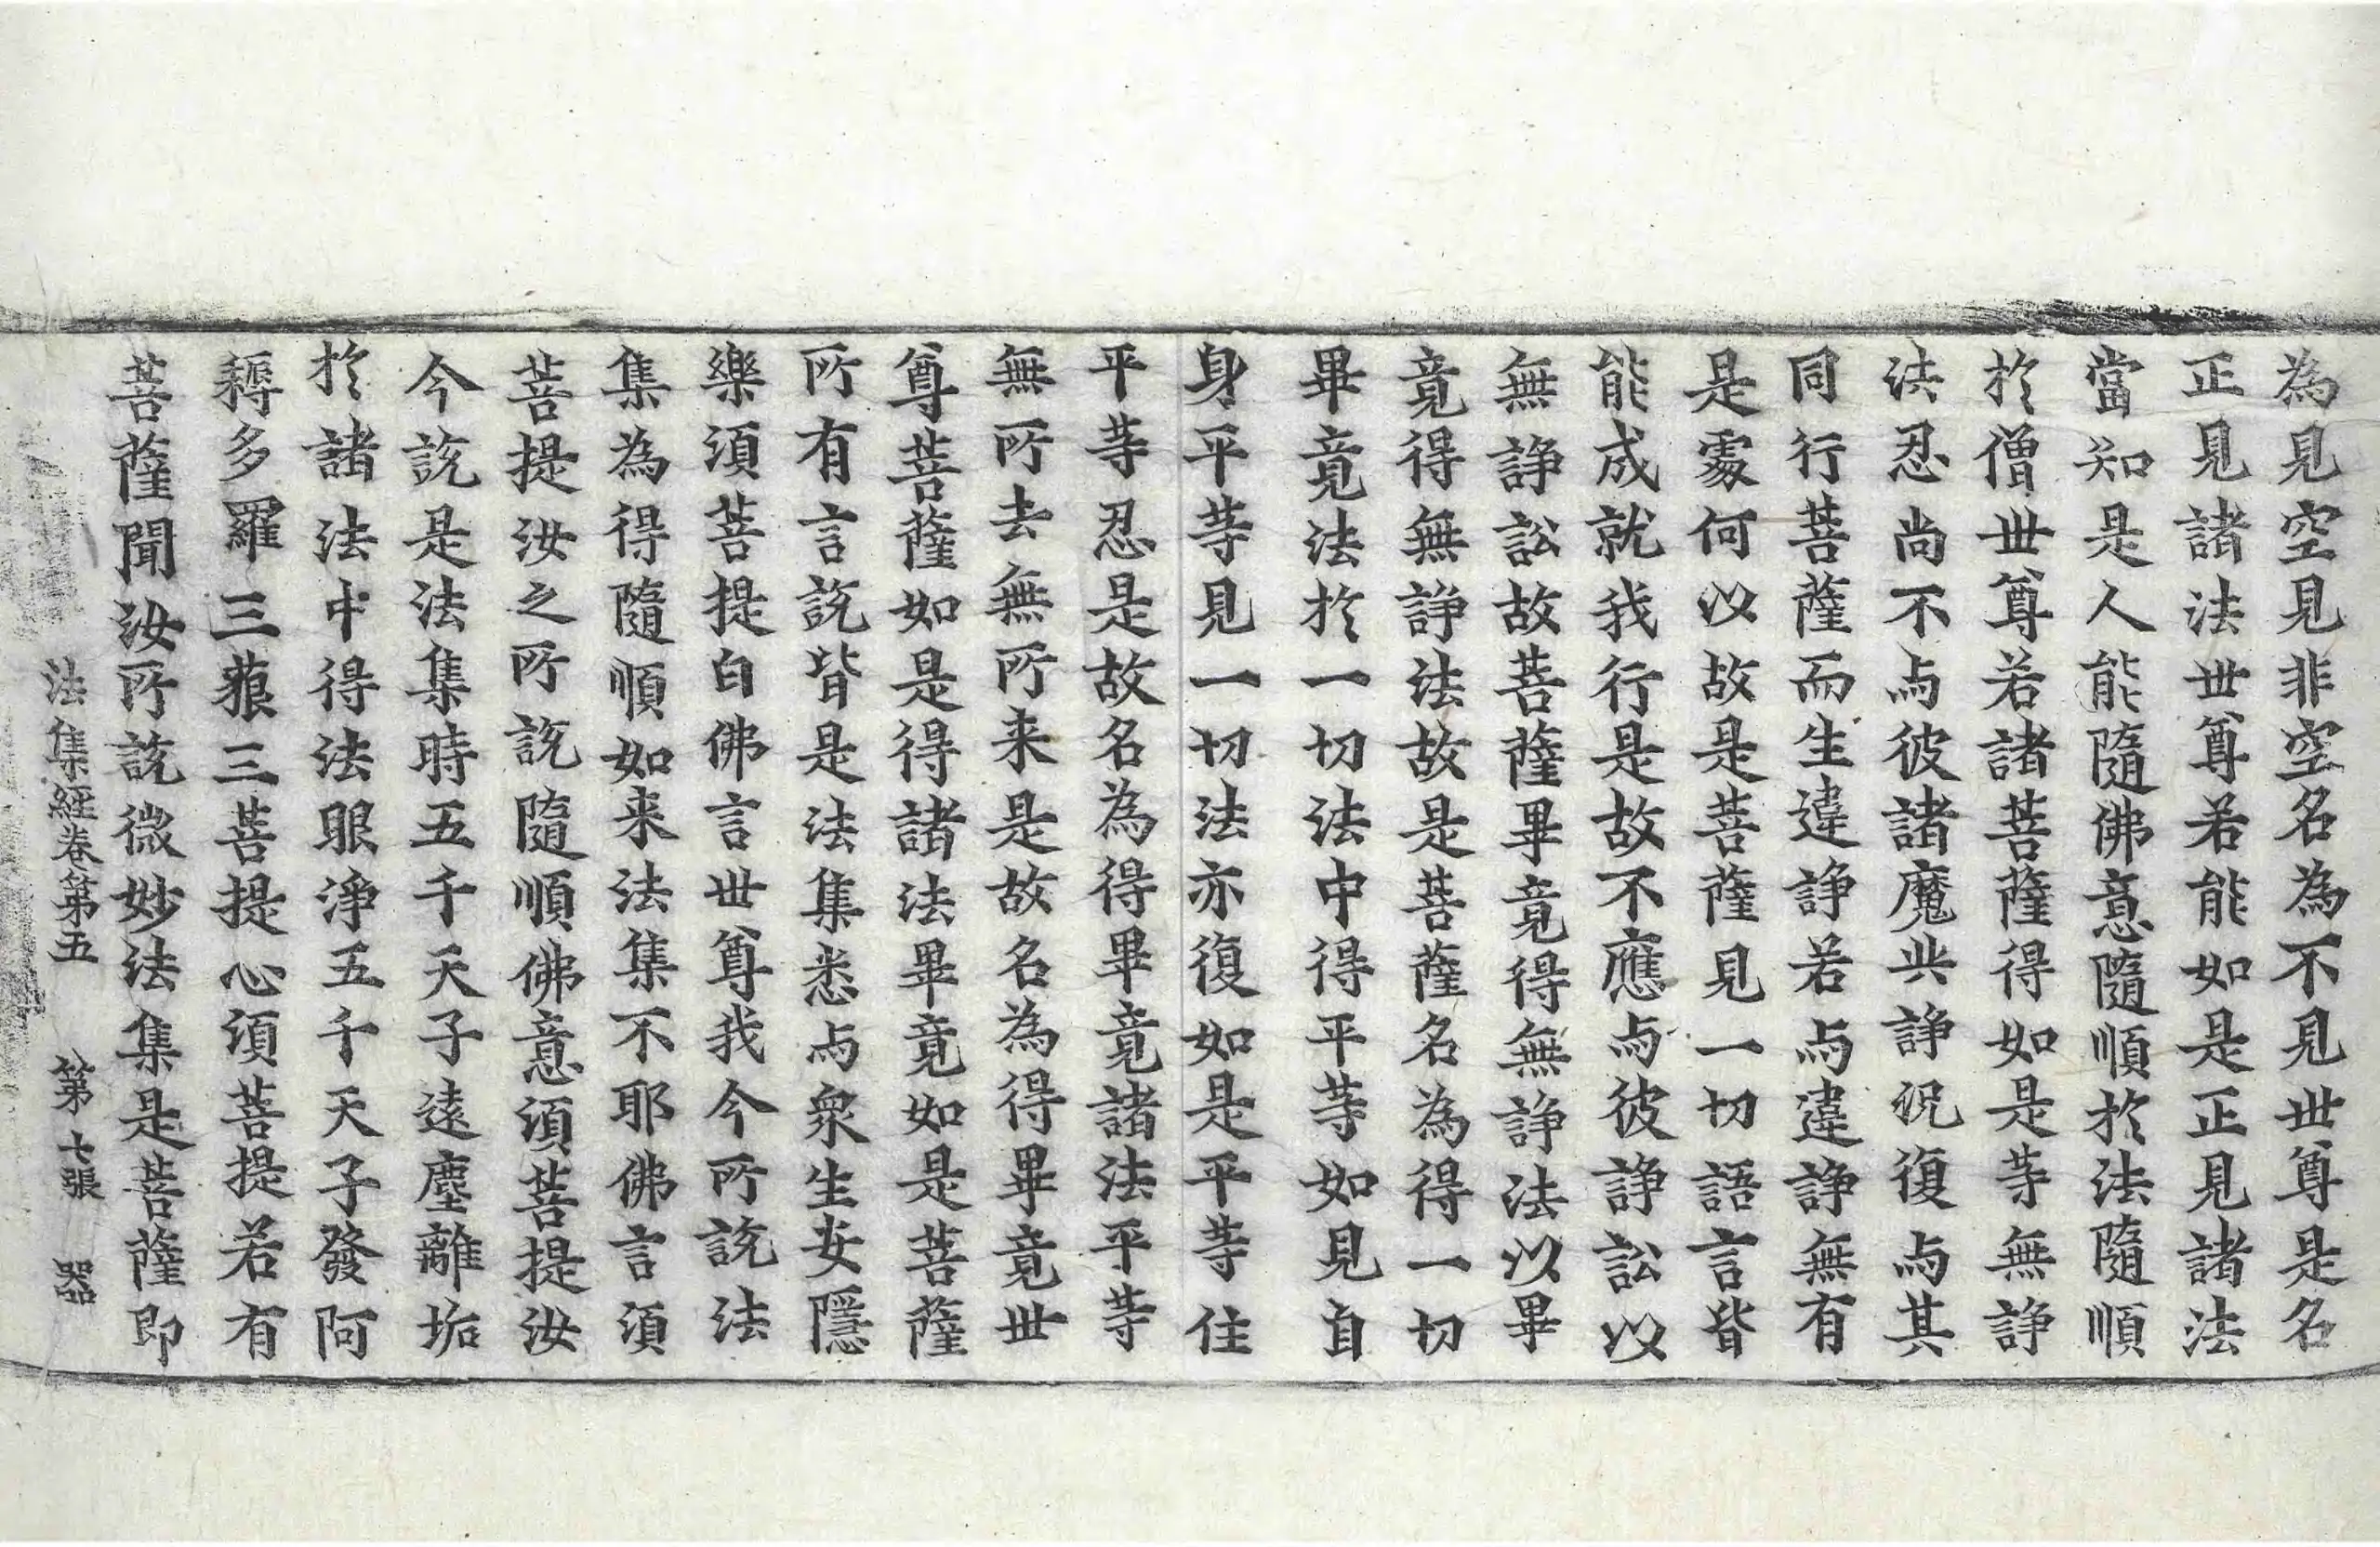 為見空見非空名為不見世尊是名
正見諸法世尊若能如是正見諸法
當知是人能隨佛意隨順於法隨順
於僧世尊若諸菩薩得如是等無諍
法忍尚不与彼諸魔共諍況復与其
同行菩薩而生違諍若与違諍無有
是處何以故是菩薩見一切語言皆
能成就我行是故不應与彼諍訟以
無諍訟故菩薩畢竟得無諍法以畢
竟得無諍法故是菩薩名為得一切
畢竟法於一切法中得平等如見自
身平等見一切法亦復如是平等住
平等忍是故名為得畢竟諸法平等
無所去無所来是故名為得畢竟世
尊菩薩如是得諸法畢竟如是菩薩
所有言說皆是法集悉与衆生安隱
樂須菩提白佛言世尊我今所說法
集為得隨順如来法集不耶佛言須
菩提汝之所說隨順佛意須菩提汝
今說是法集時五千天子遠塵離垢
於諸法中得法眼淨五千天子發阿
耨多羅三藐三菩提心須菩提若有
菩薩聞汝所說微妙法集是菩薩即
法集經卷第五 第七張 器